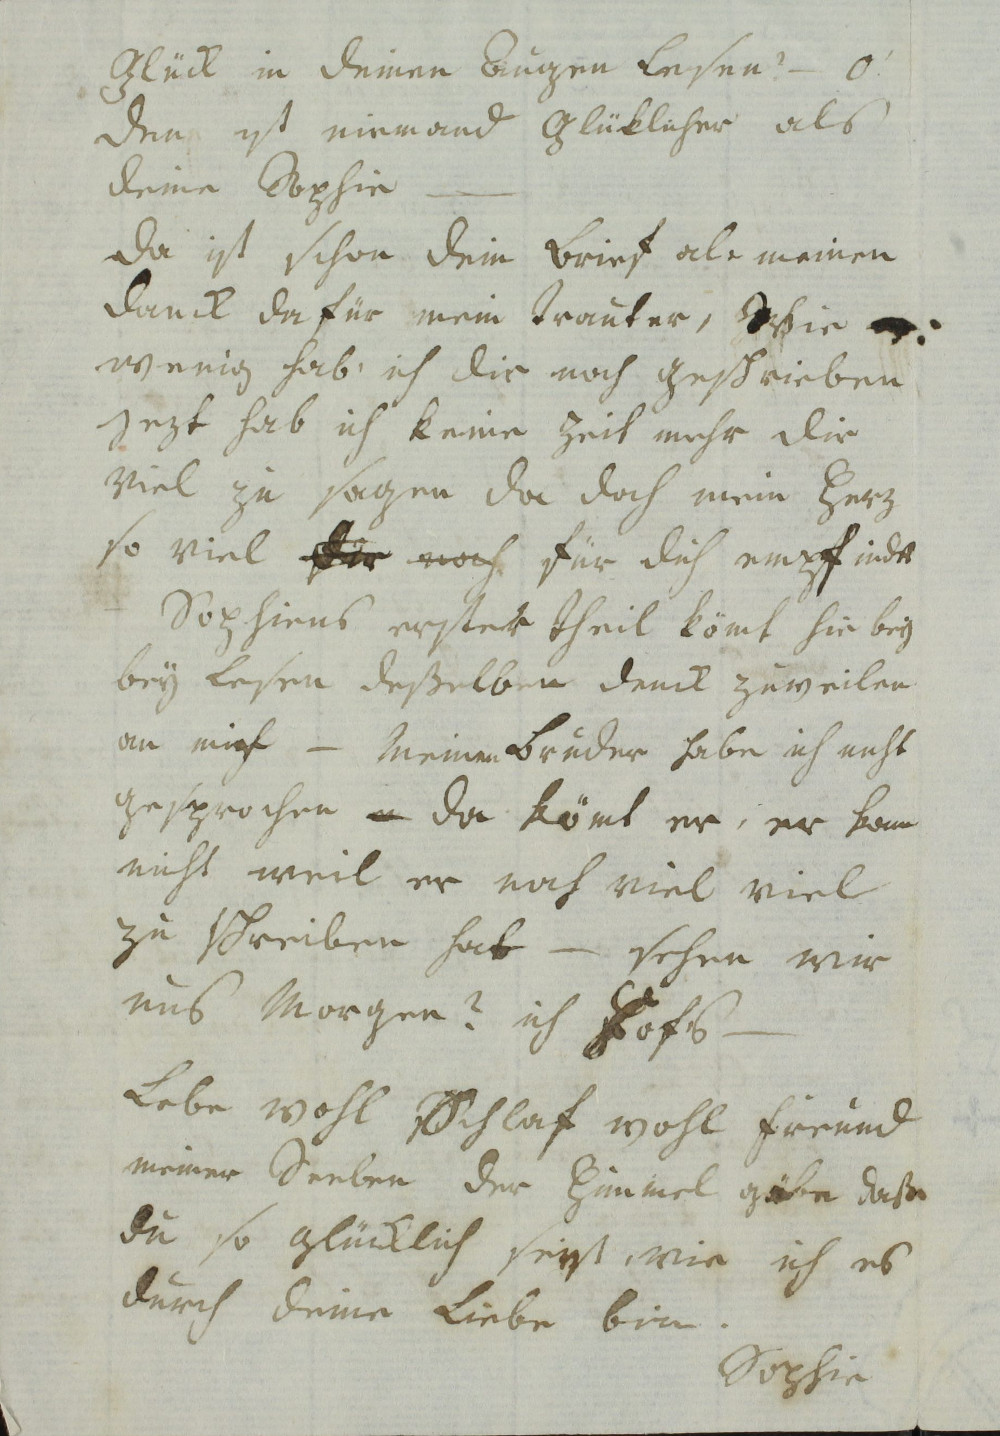 Glück in deinen Augen lesen? – O!
den ist niemand Glüklicher als
deine Sophie —
Da ist schon dein Brief als meinen
Danck dafür mein Trauter, Wie
wenig hab' ich dir noch geschrieben
Jezt hab ich keine Zeit mehr dir
viel zu sagen da doch mein Herz
so viel für noch für dich empfindet
– Sophiens erster Theil kömt hie bey
bey lesen deßelben denck zuweilen
an mich – Meinen Bruder habe ich nicht
gesprochen – da kömt er, er kann
nicht weil er noch viel viel
zu schreiben hat – sehen wir
uns Morgen? ich Hofs —
Lebe wohl Schlaf wohl Freund
meiner Seelen der Himmel gäbe daß
du so glücklich seyst, wie ich es
durch deine Liebe bin.
Sophie